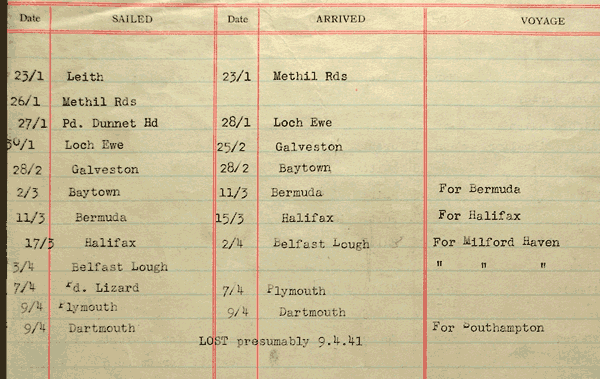 Date SAILED Date ARRIVED VOYAGE
23/1 Leith 23/1 Methil Rds
26/1 Methil Rds
27/1 Pd. Dunnet Hd 28/1 Loch Ewe
30/1 Loch Ewe 25/2 Galveston
28/2 Galveston 28/2 Baytown
2/3 Baytown 11/3 Bermuda For Bermuda
11/3 Bermuda 15/3 Halifax For Halifax
17/3 Halifax 2/4 Belfast Lough For Milford Haven
3/4 Belfast Lough " " "
7/4 Pd. Lizard 7/4 Plymouth
9/4 Plymouth 9/4 Dartmouth
9/4 Dartmouth For Southampton
LOST presumably 9.4.41